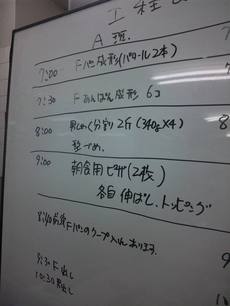 工程
A 班
7:00 Fパン成形(バタール2本)
7:30 Fあんぱん成形 6コ
8:00 分割 2斤(340g×4)
型づめ
9:00 朝食用ピザ(2枚)
各自 伸ばし、トッピング
8:40 Fパンのクープ入れあります。
9:30 F出し
10:30 出し